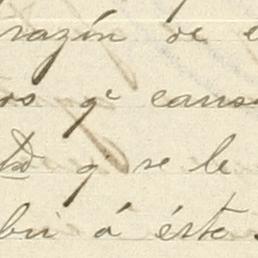 razón de
os qe caus
qe se le
bir á éste